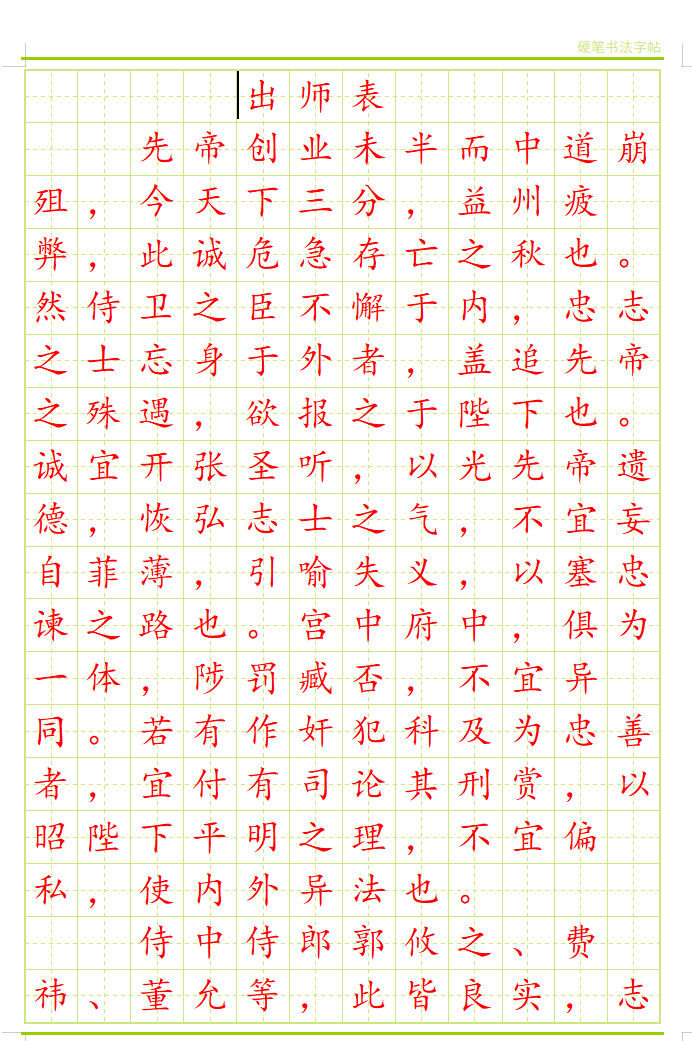 硬笔书法字帖
出师表
先帝创业未半而中道崩
殂，今天下三分，益州疲
弊，此诚危急存亡之秋也。
然侍卫之臣不懈于内，忠志
之士忘身于外者，盖追先帝
之殊遇，欲报之于陛下也。
诚宜开张圣听，以光先帝遗
德，恢弘志士之气，不宜妄
自菲薄，引喻失义，以塞忠
谏之路也。宫中府中，俱为
一体，陟罚臧否，不宜异
同。若有作奸犯科及为忠善
者，宜付有司论其刑赏，以
昭陛下平明之理，不宜偏
私，使内外异法也。
侍中侍郎郭攸之、费
祎、董允等，此皆良实，志